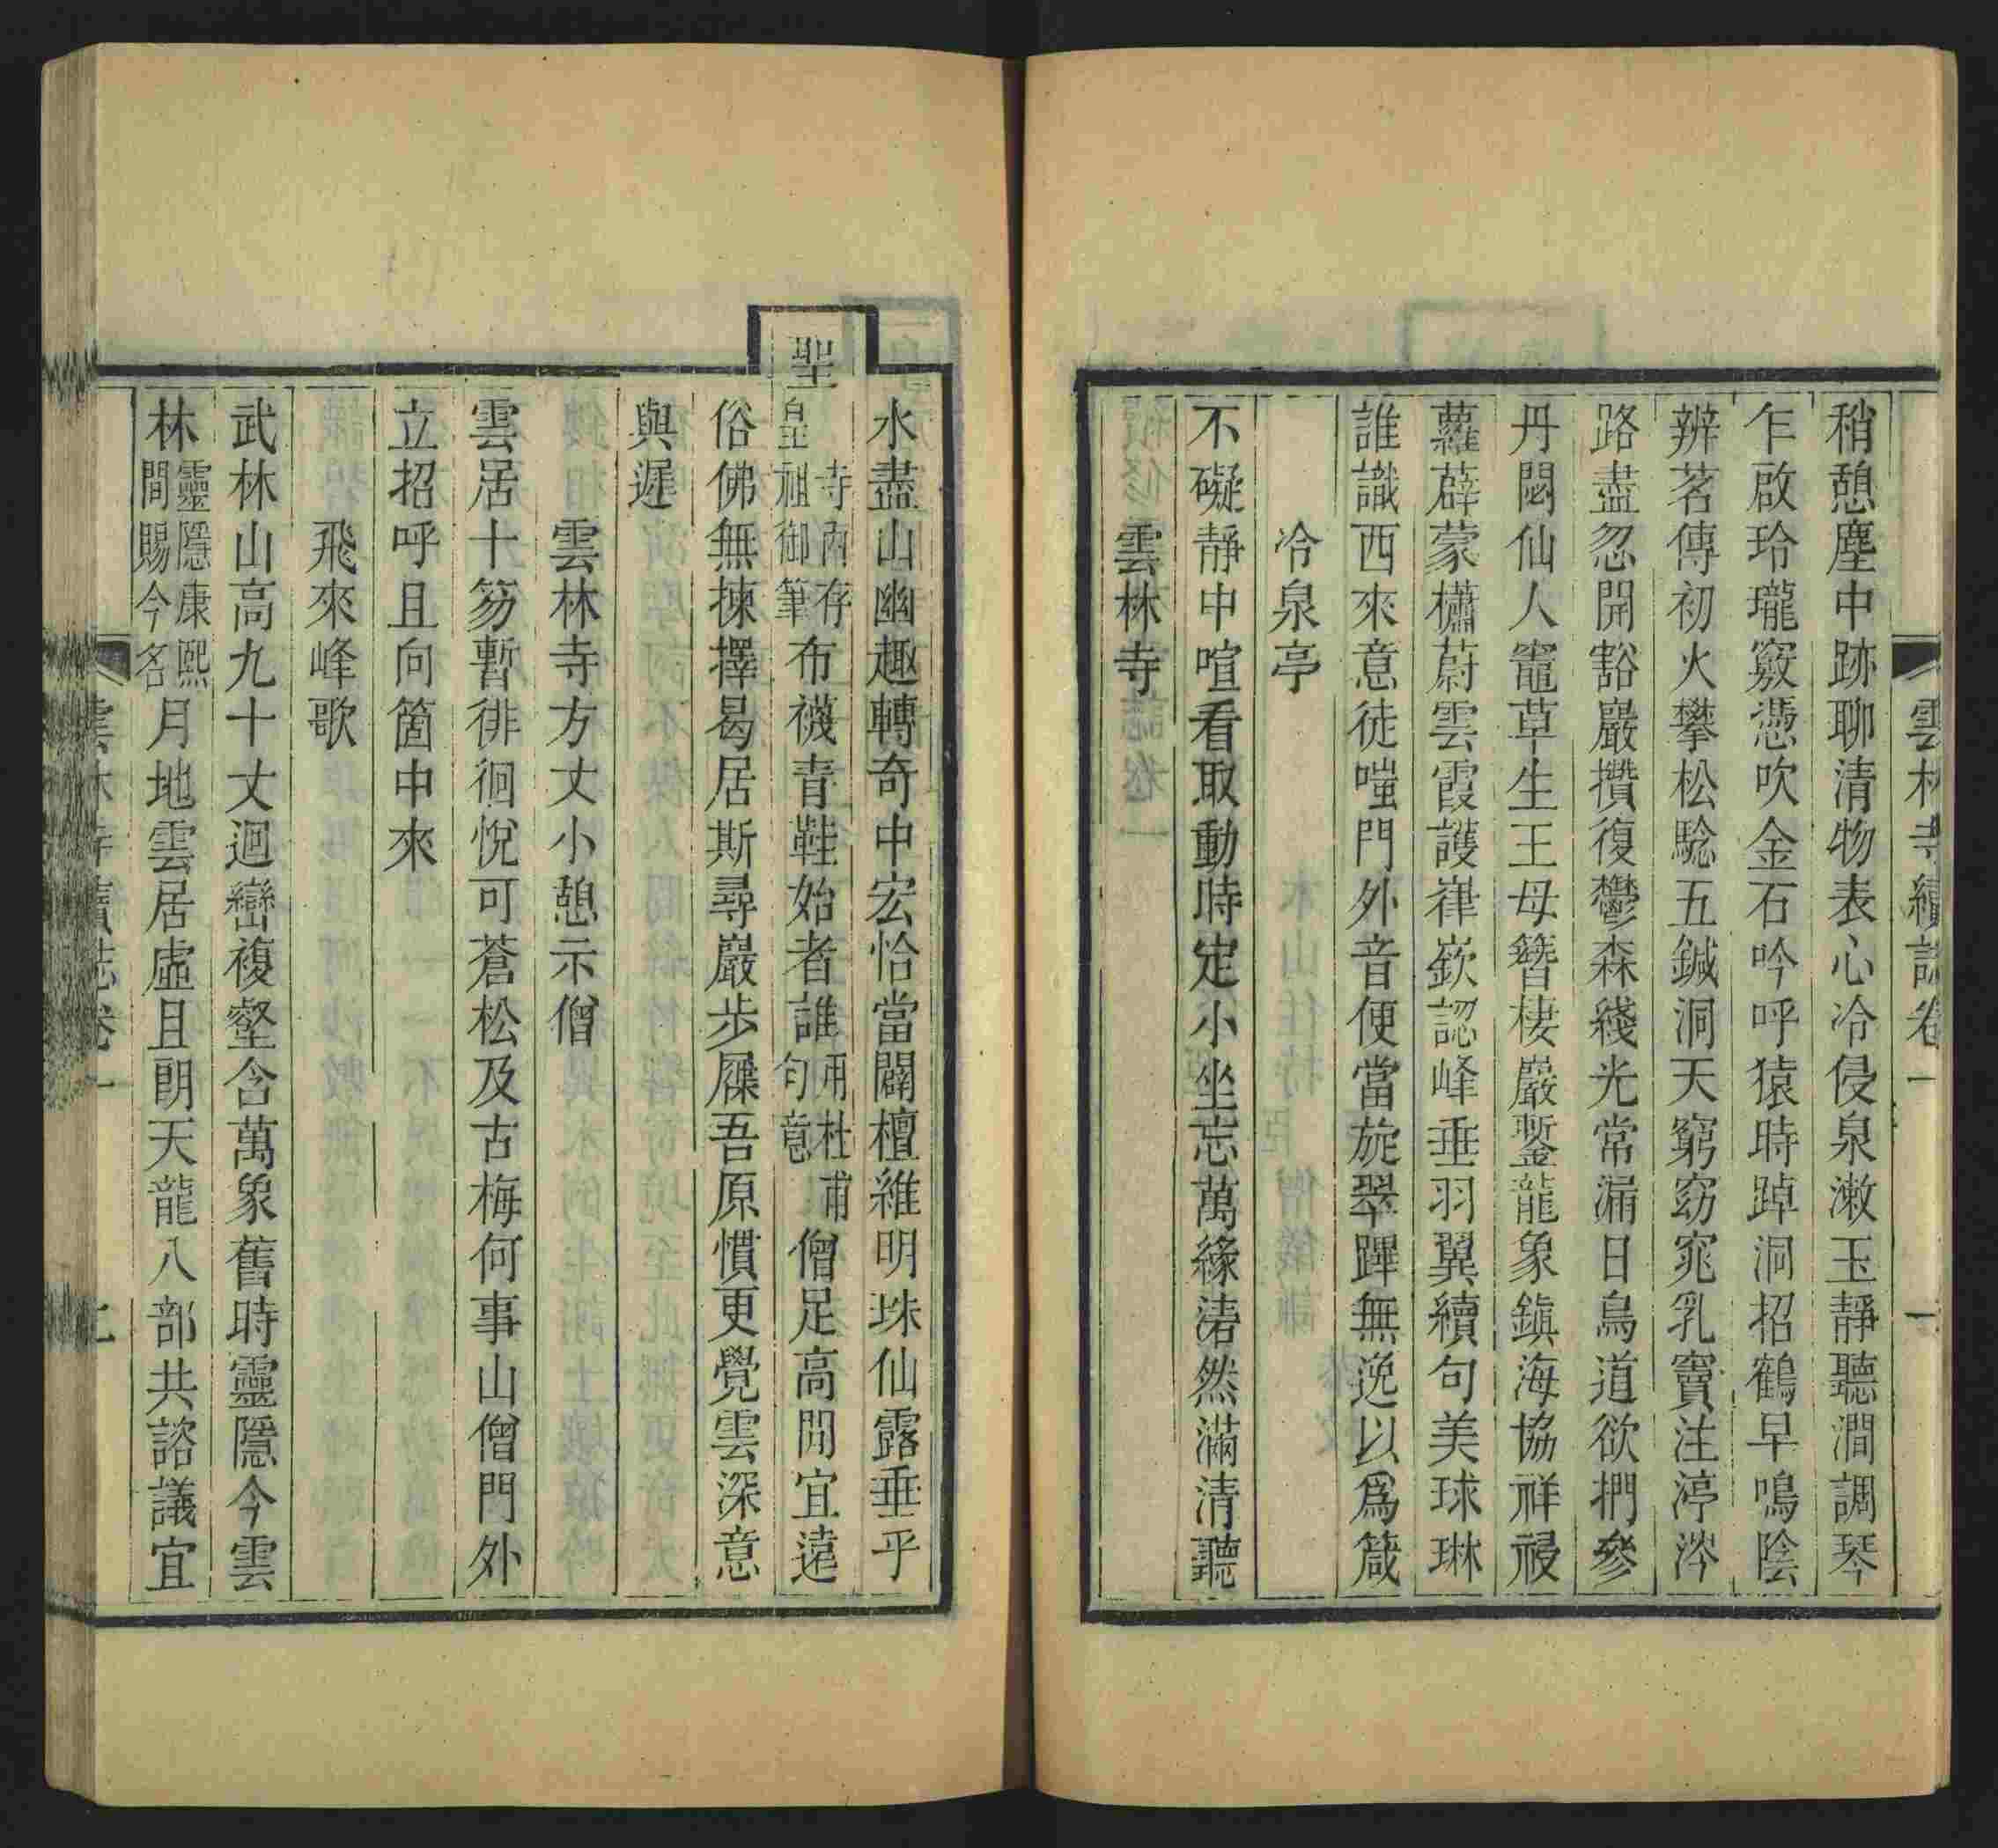 雲林寺續誌卷一 一
稍憩塵中跡聊清物表心冷侵泉漱玉靜聽澗調琴
乍啟玲瓏竅憑吹金石吟呼猿時踔洞招鶴早鳴陰
辨茗傳初火攀松驗五鍼洞天窮窈窕乳竇注渟涔
路盡忽開豁巖攢復鬱森綫光常漏日鳥道欲捫參
丹閟仙人竈草生王母簪棲巖鏨龍象鎮海協祥祲
蘿薜蒙櫹蔚雲霞護嵂嶔認峰垂羽翼續句美球琳
誰識西來意徒嗤門外音便當旋翠蹕無逸以爲箴
冷泉亭
不礙靜中喧看取動時定小坐忘萬緣湱然滿清聽
雲林寺
水盡山幽趣轉奇中宏恰當闢檀維明珠仙露垂乎
聖寺內存皇祖御筆布襪青鞋始者誰用杜甫句意僧足高閒宜遠
俗佛無揀擇曷居斯尋巖步屧吾原慣更覺雲深意
與遲
雲林寺方丈小憩示僧
雲居十笏暫徘徊悅可蒼松及古梅何事山僧門外
立招呼且向箇中來
飛來峰歌
武林山高九十丈迴巒複壑含萬象舊時靈隱今雲
林靈隱康熙間賜今名月地雲居虛且朗天龍八部共諮議宜
雲林寺續誌卷一